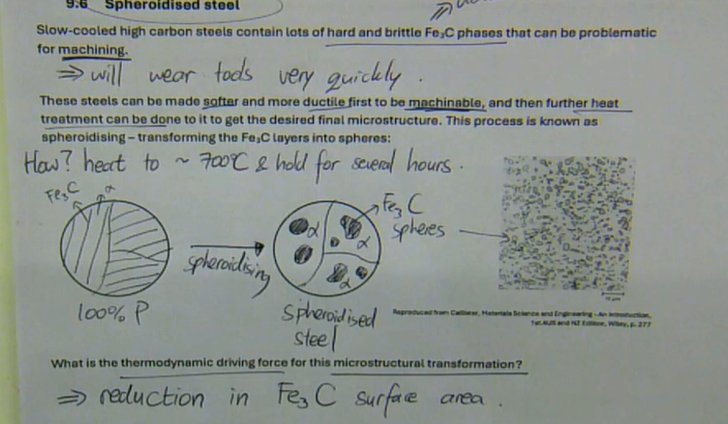 9.6 Spheroidised steel
Slow-cooled high carbon steels contain lots of hard and brittle Fe₃C phases that can be problematic
for machining.
⇒ will wear tools very quickly.
These steels can be made softer and more ductile first to be machinable, and then further heat
treatment can be done to it to get the desired final microstructure. This process is known as
spheroidising – transforming the Fe₃C layers into spheres:
How? heat to ~ 700°C & hold for several hours.
Fe₃C α
Fe₃C
spheres
α
α
α
spheroidising
100% P
Spheroidised
steel
Reproduced from Callister, Materials Science and Engineering - An Introduction,
1st AUS and NZ Edition, Wiley, p. 277
What is the thermodynamic driving force for this microstructural transformation?
⇒ reduction in Fe₃C surface area.